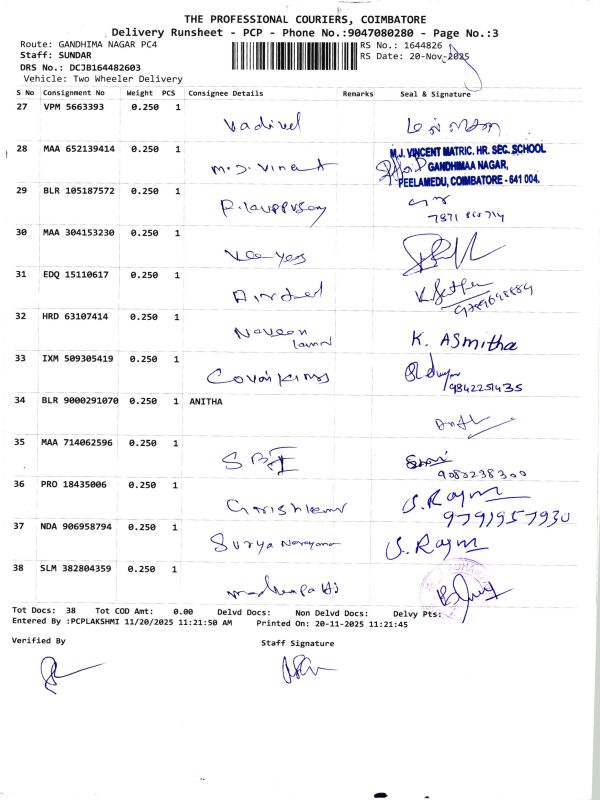 THE PROFESSIONAL COURIERS, COIMBATORE
Delivery Runsheet - PCP - Phone No.:9047080280 - Page No.:3
Route: GANDHIMA NAGAR PC4 RS No.: 1644826
Staff: SUNDAR RS Date: 20-Nov-2025
DRS No.: DCJB164482603
Vehicle: Two Wheeler Delivery
S No Consignment No Weight PCS Consignee Details Remarks Seal & Signature
27 VPM 5663393 0.250 1
Vadivel
28 MAA 652139414 0.250 1
M.J. Vincent M.J. VINCENT MATRIC. HR. SEC. SCHOOL
GANDHIMAA NAGAR,
PEELAMEDU, COIMBATORE - 641 004.
29 BLR 105187572 0.250 1
30 MAA 304153230 0.250 1
31 EDQ 15110617 0.250 1
32 HRD 63107414 0.250 1
Naveen K. ASmitha
33 IXM 509305419 0.250 1
9842251435
34 BLR 9000291070 0.250 1 ANITHA
35 MAA 714062596 0.250 1
SBI
9082238300
36 PRO 18435006 0.250 1
U. Raym
9791957930
37 NDA 906958794 0.250 1
Surya Narayana U. Raym
38 SLM 382804359 0.250 1
Tot Docs: 38 Tot COD Amt: 0.00 Delvd Docs: Non Delvd Docs: Delvy Pts:
Entered By :PCPLAKSHMI 11/20/2025 11:21:50 AM Printed On: 20-11-2025 11:21:45
Verified By Staff Signature